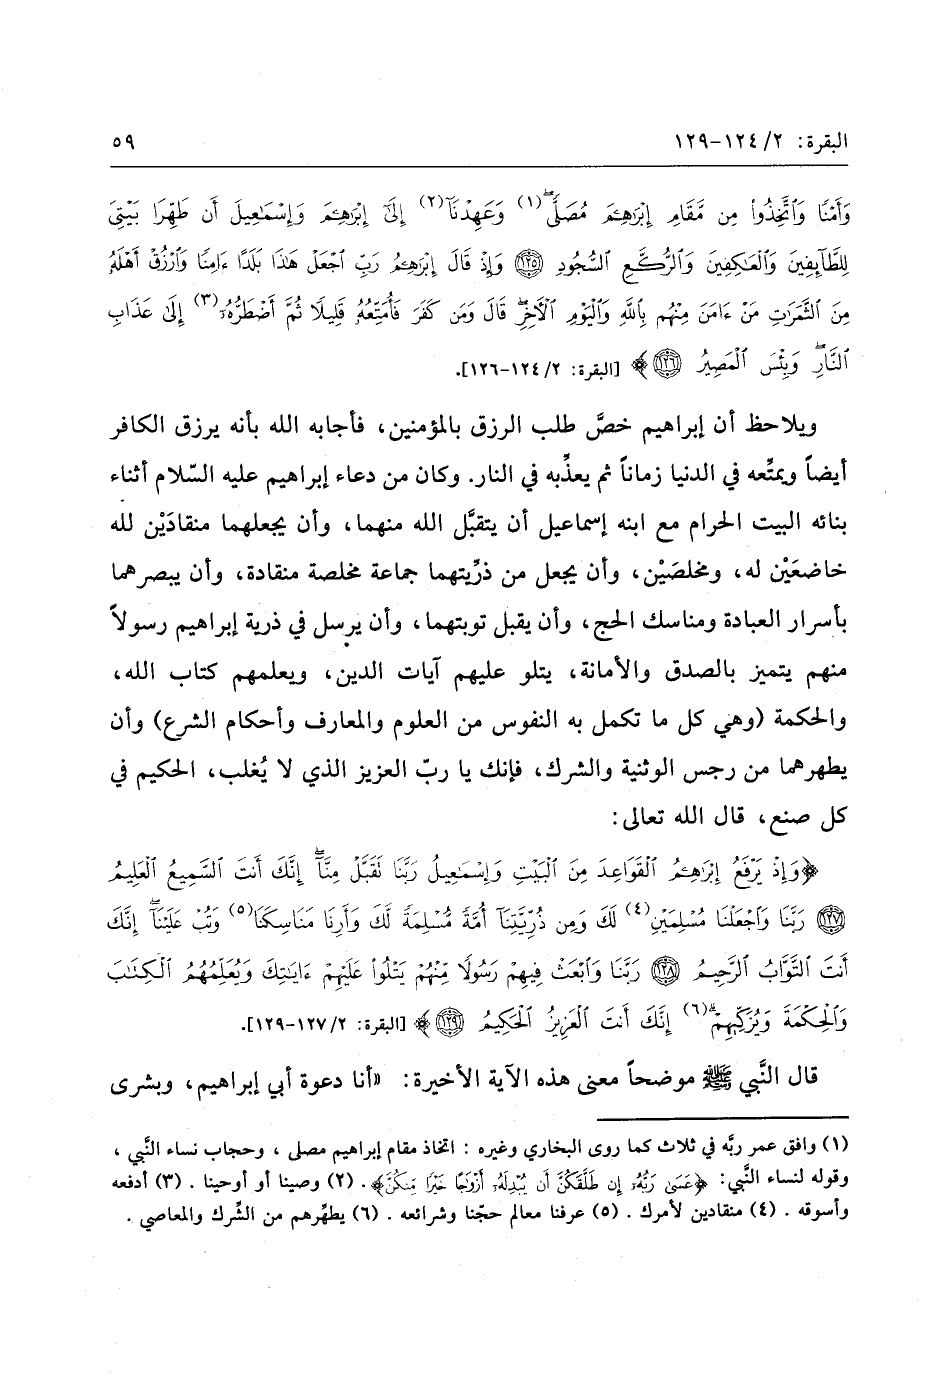 البقرة: ٢/ ١٢٤-١٢٩ ٥٩
وَأَمْنًا وَٱتَّخِذُوا۟ مِن مَّقَامِ إِبْرَٰهِـۧمَ مُصَلًّىۖ(١) وَعَهِدْنَآ(٢) إِلَىٰٓ إِبْرَٰهِـۧمَ وَإِسْمَٰعِيلَ أَن طَهِّرَا بَيْتِىَ
لِلطَّآئِفِينَ وَٱلْعَٰكِفِينَ وَٱلرُّكَّعِ ٱلسُّجُودِ ١٢٥ وَإِذْ قَالَ إِبْرَٰهِـۧمُ رَبِّ ٱجْعَلْ هَٰذَا بَلَدًا ءَامِنًا وَٱرْزُقْ أَهْلَهُۥ
مِنَ ٱلثَّمَرَٰتِ مَنْ ءَامَنَ مِنْهُم بِٱللَّهِ وَٱلْيَوْمِ ٱلْءَاخِرِۖ قَالَ وَمَن كَفَرَ فَأُمَتِّعُهُۥ قَلِيلًا ثُمَّ أَضْطَرُّهُۥٓ(٣) إِلَىٰ عَذَابِ
ٱلنَّارِۖ وَبِئْسَ ٱلْمَصِيرُ ١٢٦﴾ [البقرة: ٢/ ١٢٤-١٢٦].
ويلاحظ أن إبراهيم خصَّ طلب الرزق بالمؤمنين، فأجابه الله بأنه يرزق الكافر
أيضاً ويمتِّعه في الدنيا زماناً ثم يعذِّبه في النار. وكان من دعاء إبراهيم عليه السّلام أثناء
بنائه البيت الحرام مع ابنه إسماعيل أن يتقبَّل الله منهما، وأن يجعلهما منقادَيْن لله
خاضعَيْن له، ومخلصَيْن، وأن يجعل من ذرِّيتهما جماعة مخلصة منقادة، وأن يبصرهما
بأسرار العبادة ومناسك الحج، وأن يقبل توبتهما، وأن يرسل في ذرية إبراهيم رسولاً
منهم يتميز بالصدق والأمانة، يتلو عليهم آيات الدين، ويعلمهم كتاب الله،
والحكمة (وهي كل ما تكمل به النفوس من العلوم والمعارف وأحكام الشرع) وأن
يطهرهما من رجس الوثنية والشرك، فإنك يا ربّ العزيز الذي لا يُغلب، الحكيم في
كل صنع، قال الله تعالى:
﴿وَإِذْ يَرْفَعُ إِبْرَٰهِـۧمُ ٱلْقَوَاعِدَ مِنَ ٱلْبَيْتِ وَإِسْمَٰعِيلُ رَبَّنَا تَقَبَّلْ مِنَّآۖ إِنَّكَ أَنتَ ٱلسَّمِيعُ ٱلْعَلِيمُ
١٢٧ رَبَّنَا وَٱجْعَلْنَا مُسْلِمَيْنِ(٤) لَكَ وَمِن ذُرِّيَّتِنَآ أُمَّةً مُّسْلِمَةً لَّكَ وَأَرِنَا مَنَاسِكَنَا(٥) وَتُبْ عَلَيْنَآۖ إِنَّكَ
أَنتَ ٱلتَّوَّابُ ٱلرَّحِيمُ ١٢٨ رَبَّنَا وَٱبْعَثْ فِيهِمْ رَسُولًا مِّنْهُمْ يَتْلُوا۟ عَلَيْهِمْ ءَايَٰتِكَ وَيُعَلِّمُهُمُ ٱلْكِتَٰبَ
وَٱلْحِكْمَةَ وَيُزَكِّيهِمْۚ(٦) إِنَّكَ أَنتَ ٱلْعَزِيزُ ٱلْحَكِيمُ ١٢٩﴾ [البقرة: ٢/ ١٢٧-١٢٩].
قال النَّبي ﷺ موضحاً معنى هذه الآية الأخيرة: «أنا دعوة أبي إبراهيم، وبشرى
(١) وافق عمر ربَّه في ثلاث كما روى البخاري وغيره : اتخاذ مقام إبراهيم مصلى ، وحجاب نساء النَّبي ،
وقوله لنساء النَّبي: ﴿عَسَىٰ رَبُّهُۥٓ إِن طَلَّقَكُنَّ أَن يُبْدِلَهُۥٓ أَزْوَٰجًا خَيْرًا مِّنكُنَّ﴾ . (٢) وصينا أو أوحينا . (٣) أدفعه
وأسوقه . (٤) منقادين لأمرك . (٥) عرفنا معالم حجّنا وشرائعه . (٦) يطهّرهم من الشِّرك والمعاصي .